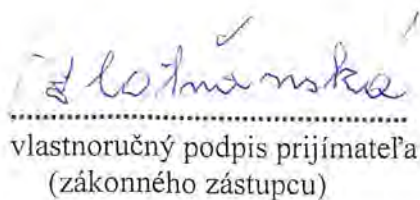 Zlatňanská
vlastnoručný podpis prijímateľa
(zákonného zástupcu)